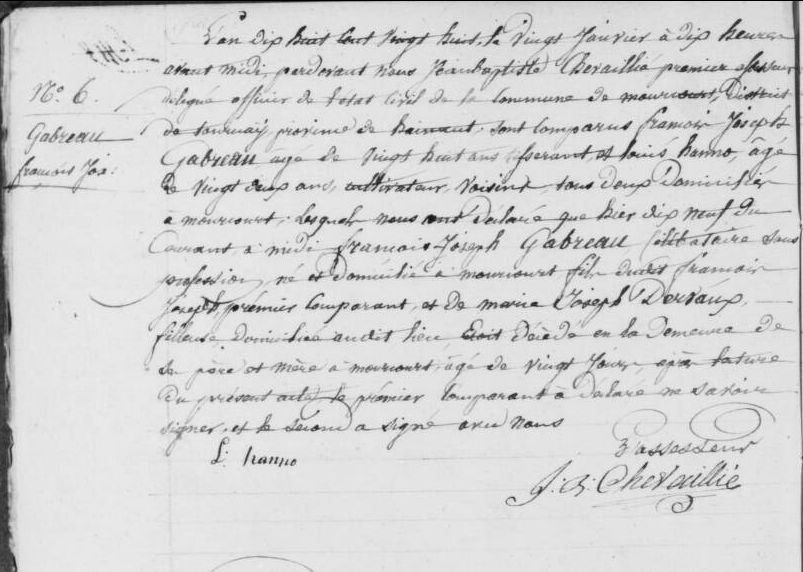 L'an dix huit cent vingt huit, le vingt Janvier à dix heures
avant midi, pardevant nous Jeanbaptiste Chevaillié premier assesseur
délégué officier de l'état civil de la commune de mourcourt, District
de tournay, province de hainaut, sont comparus francois Joseph
Gabreau âgé de vingt huit ans tisserant et louis hanno, âgé
de vingt deux ans, cultivateur, voisins, tous deux Domiciliés
a mourcourt, lesquels nous ont Déclaré que hier dix neuf du
Courant, à midi francois Joseph Gabreau célibataire sans
profession, né et Domicilié à mourcourt fils dudit francois
Joseph, premier comparant, et de marie Joseph Dervaux,
fileuse, Domiciliée audit lieu, Est Décédé en la Demeure de
ses père et mère à mourcourt, âgé de vingt Jours, après lecture
du présent acte, le prémier comparant à Déclaré ne savoir
signer, et le second a signé avec nous
N.o 6.
Gabreau
francois Jos:
L: hanno
L'assesseur
J. B. Chevaillié